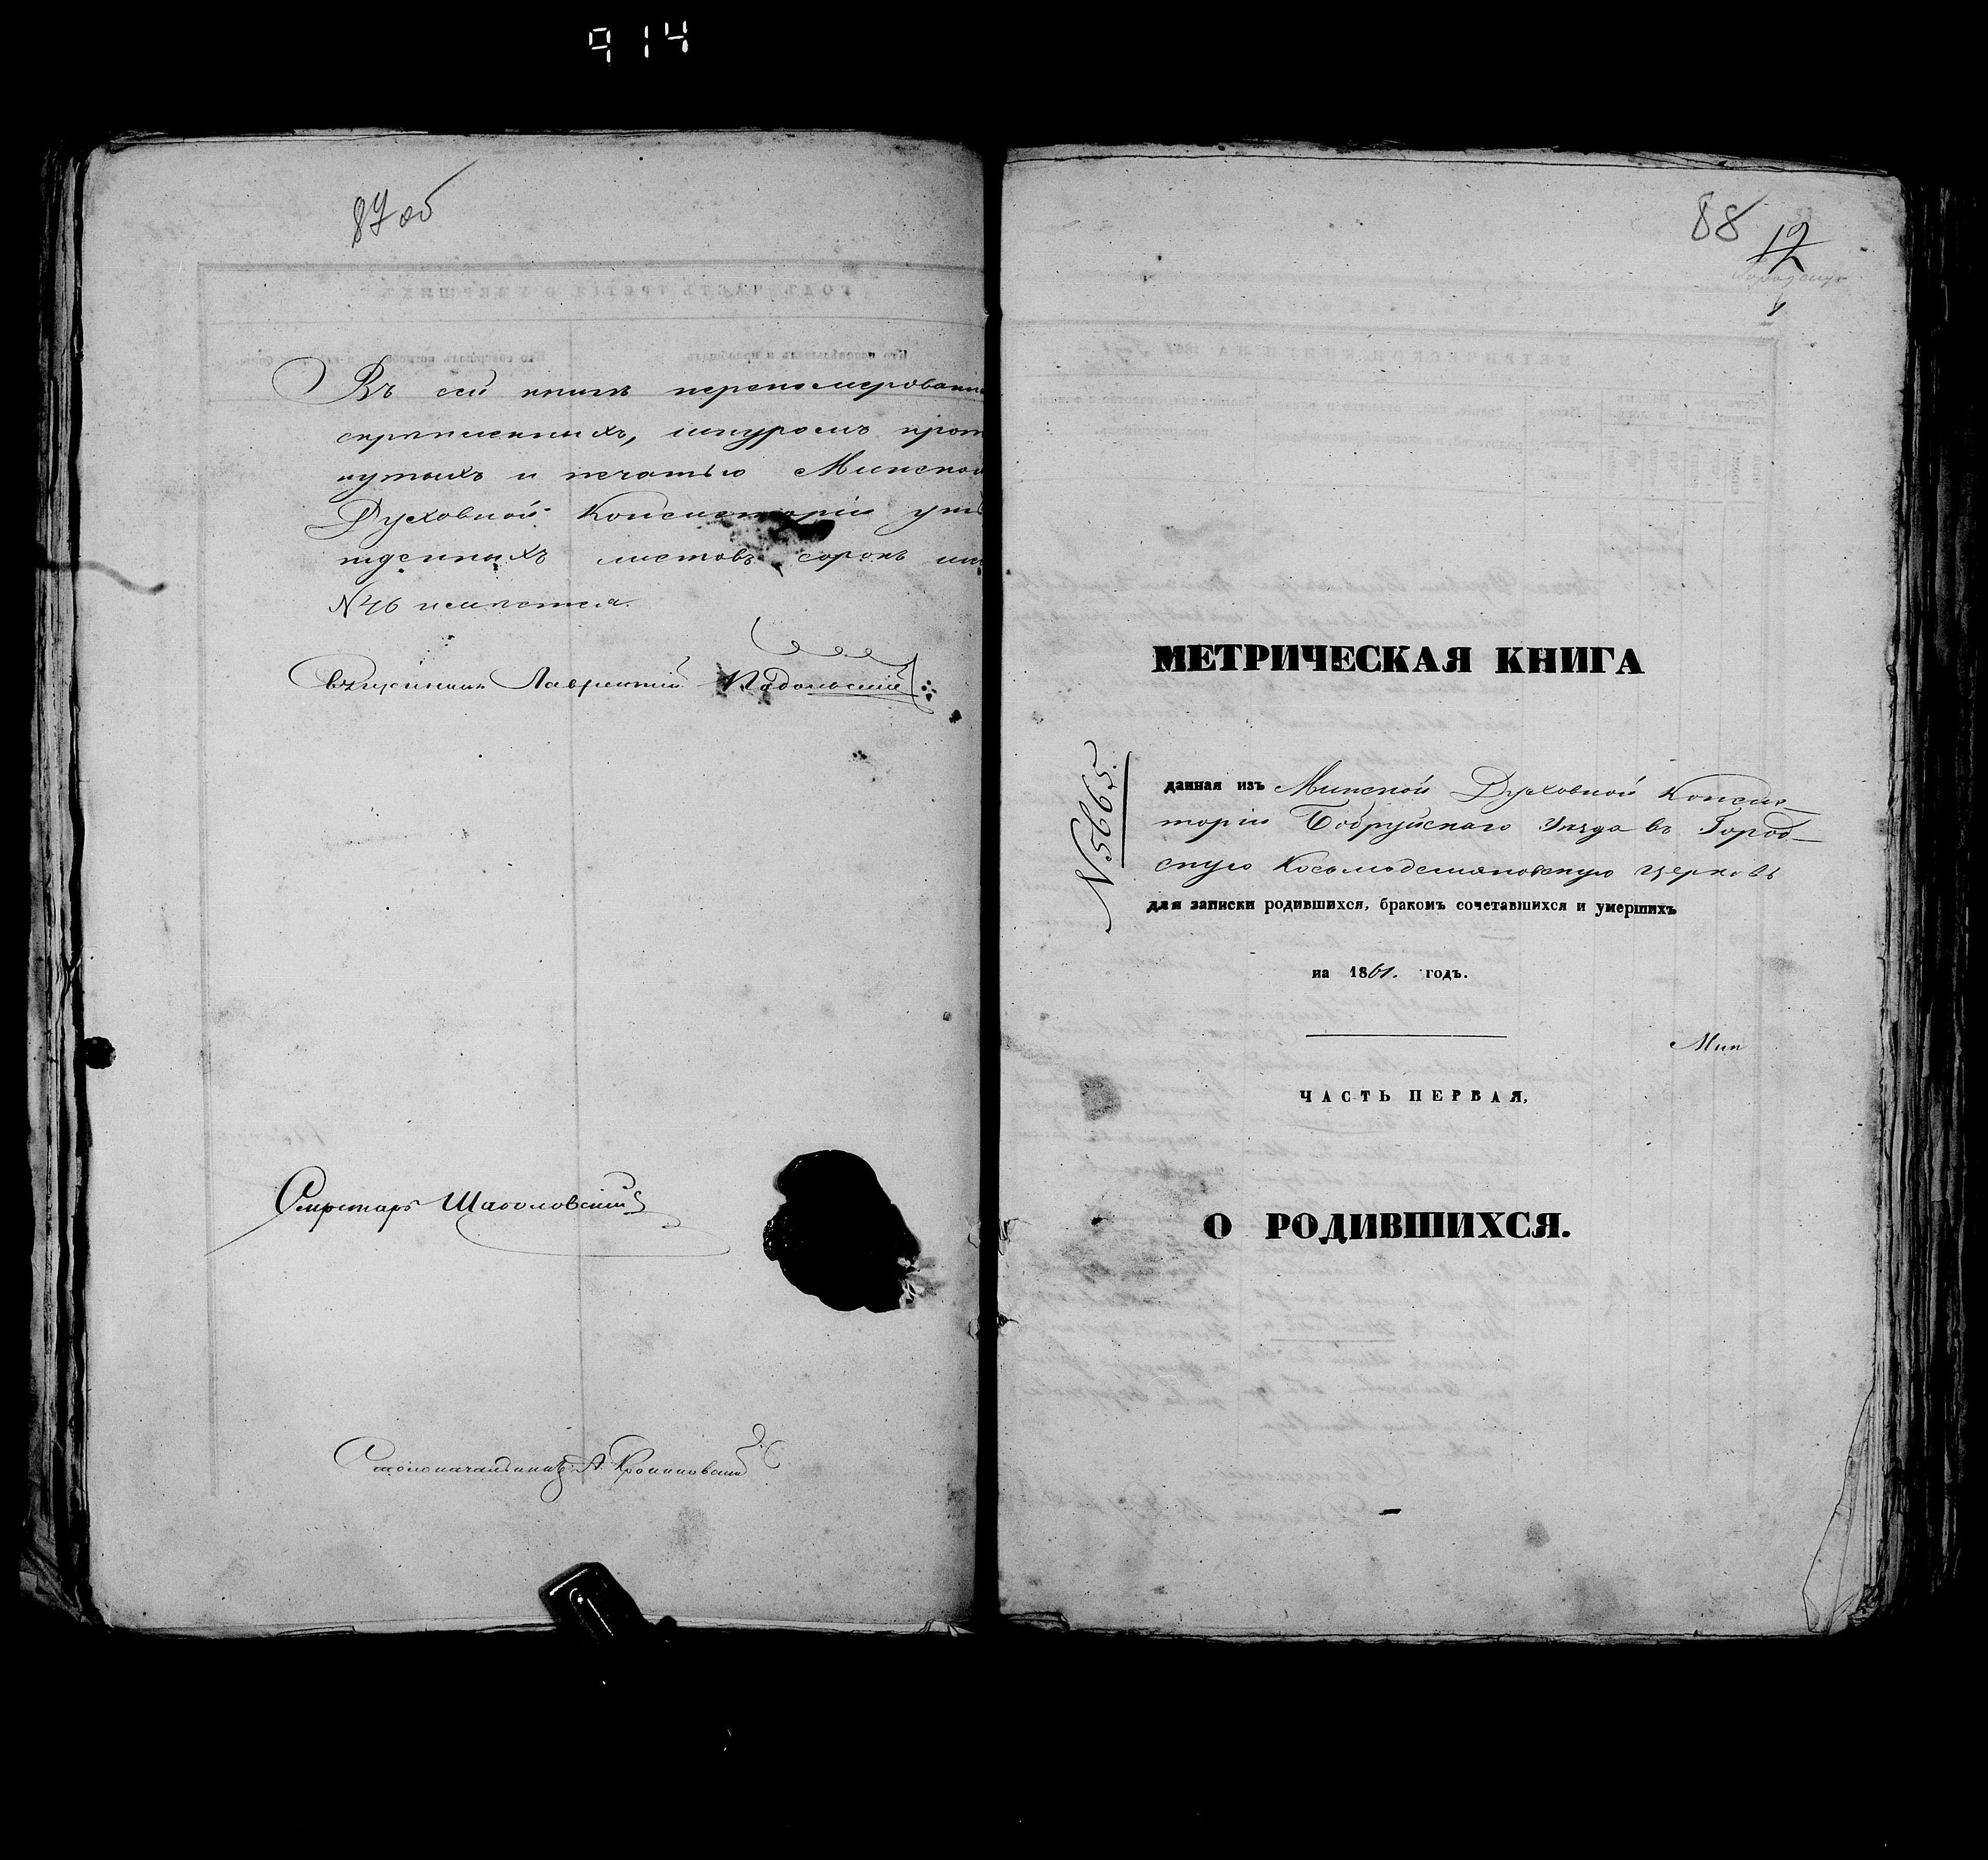 914
87 об
Въ сей книгѣ перенумерованн
скрѣпленныхъ, шнуромъ прот
нутыхъ и печатью Минской
Духовной Консисторіи утв
жденныхъ листовъ сорокъ ше
N46 исписано
Священникъ Лаврентій
Секретарь
Столоначальникъ А.
88
12
МЕТРИЧЕСКАЯ КНИГА
N5665.
данная изъ Минской Духовной Консис-
торіи Бобруйскаго Уѣзда въ Город-
скую Косьмодемяновскую церковь
для записки родившихся, бракомъ сочетавшихся и умершихъ
на 1861. годъ.
Мин
ЧАСТЬ ПЕРВАЯ,
О РОДИВШИХСЯ.